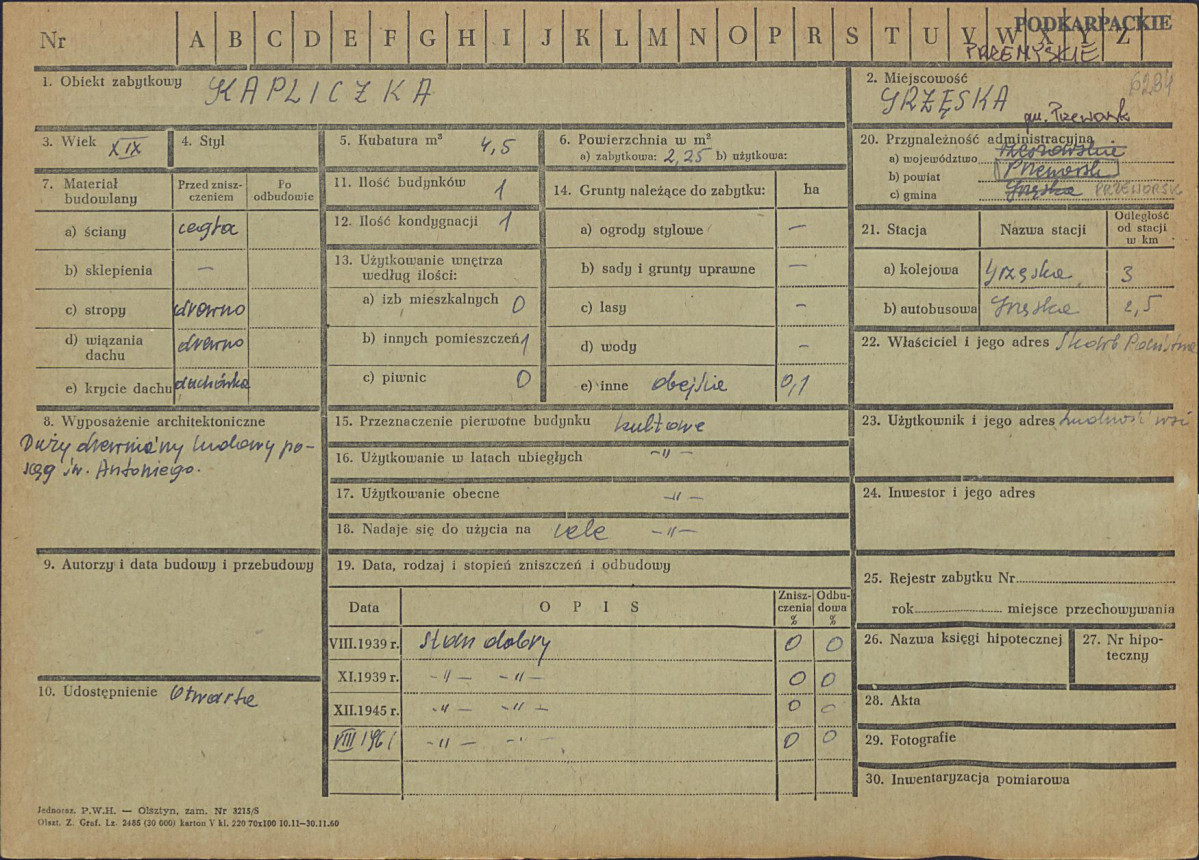 Nr A B C D E F G H I J K L M N O P R S T U V W X Y Z PODKARPACKIE
PRZEMYSKIE
1. Obiekt zabytkowy KAPLICZKA
2. Miejscowość 6284
GRZĘSKA
gm. Przeworsk
3. Wiek XIX
4. Styl
5. Kubatura m³ 4,5
6. Powierzchnia w m²
a) zabytkowa: 2,25 b) użytkowa:
7. Materiał budowlany
Przed zniszczeniem
Po odbudowie
a) ściany cegła
b) sklepienia —
c) stropy drewno
d) wiązania dachu drewno
e) krycie dachu dachówka
8. Wyposażenie architektoniczne
Duży drewniany ludowy po-
sąg św. Antoniego.
9. Autorzy i data budowy i przebudowy
10. Udostępnienie Otwarta
11. Ilość budynków 1
12. Ilość kondygnacji 1
13. Użytkowanie wnętrza
według ilości:
a) izb mieszkalnych 0
b) innych pomieszczeń 1
c) piwnic 0
14. Grunty należące do zabytku: ha
a) ogrody stylowe —
b) sady i grunty uprawne —
c) lasy -
d) wody —
e) inne obejście 0,1
15. Przeznaczenie pierwotne budynku kultowe
16. Użytkowanie w latach ubiegłych —"—
17. Użytkowanie obecne —"—
18. Nadaje się do użycia na cele —"—
19. Data, rodzaj i stopień zniszczeń i odbudowy
Data
OPIS
Zniszczenia %
Odbudowa %
VIII.1939 r. Stan dobry 0 0
XI.1939 r. —"— —"— 0 0
XII.1945 r. —"— —"— 0 0
VIII 1961 —"— —"— 0 0
20. Przynależność administracyjna
a) województwo rzeszowskie
b) powiat Przeworsk
c) gmina Grzęska PRZEWORSK
21. Stacja
Nazwa stacji
Odległość
od stacji
w km
a) kolejowa Grzęska 3
b) autobusowa Grzęska 2,5
22. Właściciel i jego adres Skarb Państwa
23. Użytkownik i jego adres Ludność wsi
24. Inwestor i jego adres
25. Rejestr zabytku Nr
rok miejsce przechowywania
26. Nazwa księgi hipotecznej
27. Nr hipo-
teczny
28. Akta
29. Fotografie
30. Inwentaryzacja pomiarowa
Jednoraz. P.W.H. — Olsztyn, zam. Nr 3215/S
Olszt. Z. Graf. Lz. 2485 (30 000) karton V kl. 220 70x100 10.11—30.11.60